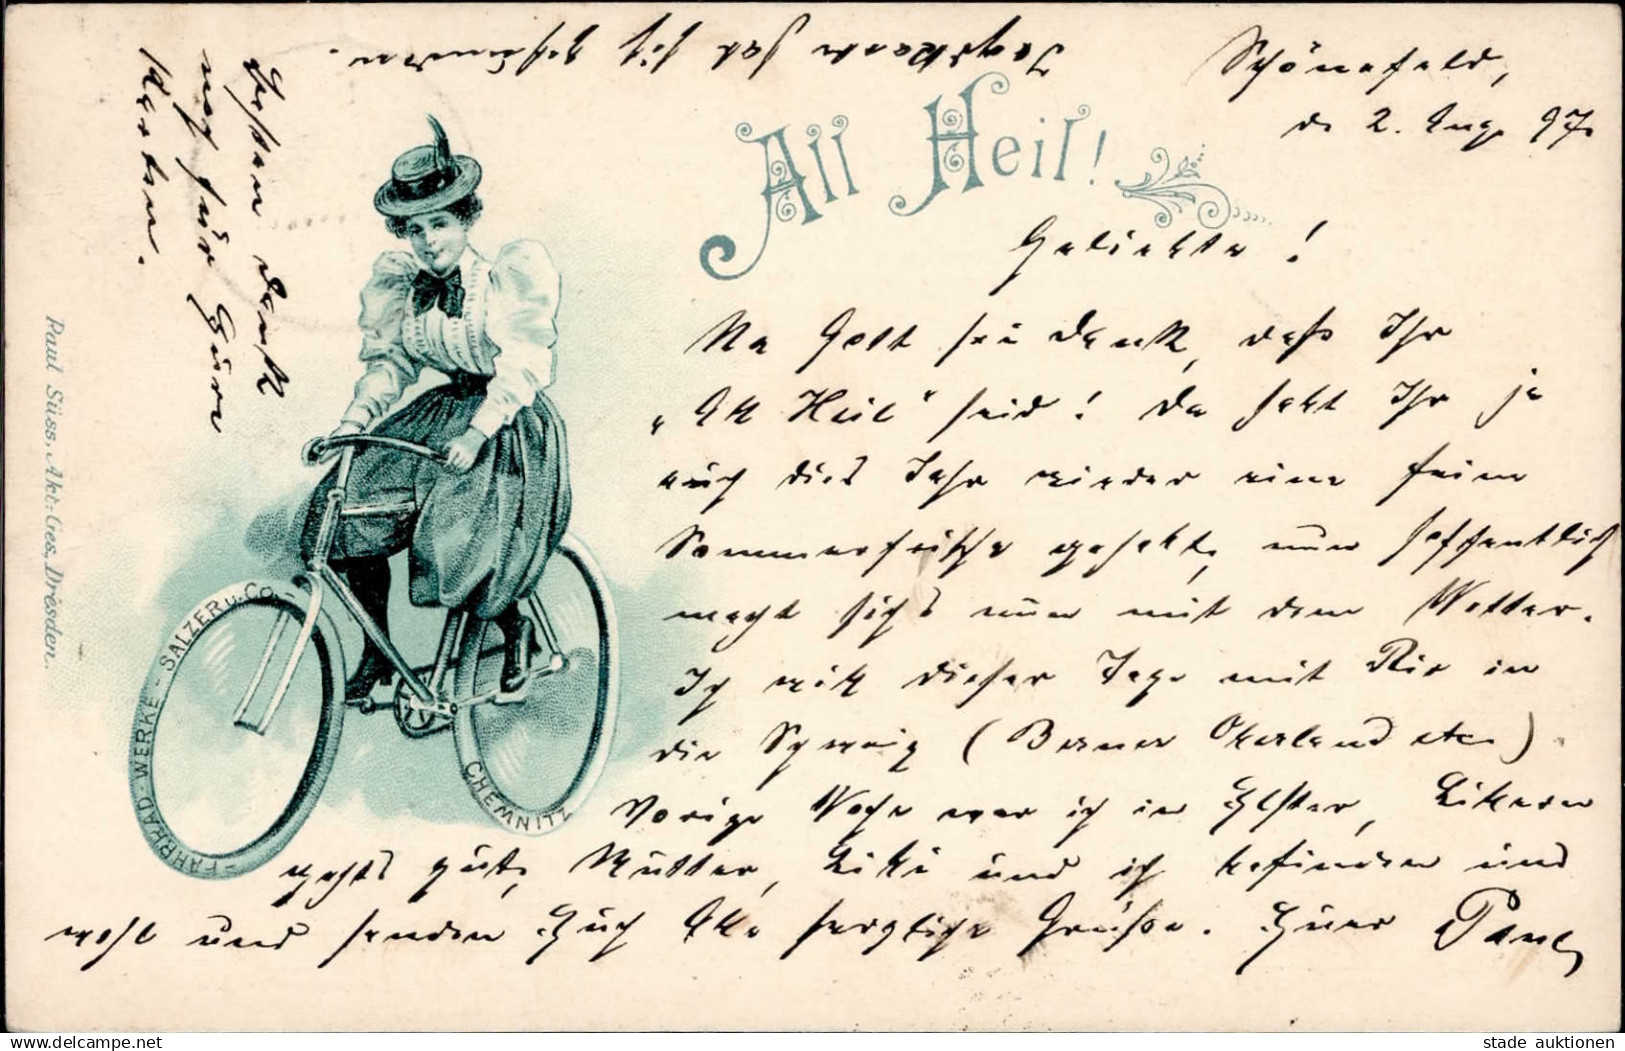 Schönefeld,
d. 2. Aug. 97.
All Heil!
Geliebte!
Na Gott sei Dank, daß Ihr
„All Heil" seid! Da habt Ihr ja
auch dies Jahr wieder eine feine
Sommerfrische gehabt, nun hoffentlich
macht sichs nun mit dem Wetter.
Ich will dieser Tage mit Ric in
die Schweiz (Berner Oberland etc.)
Vorige Woche war ich in Elster,
gehts gut, Mutter, und ich befinden uns
wohl und senden Euch Alle herzliche Grüße. Euer Paul
Besten Dank
noch für Eure
Karten.
hat sich gefunden.
FAHRRAD-WERKE - SALZER u. Co. -
CHEMNITZ
Paul Süss, Akt: Ges., Dresden.
stade auktionen
delcampe.net